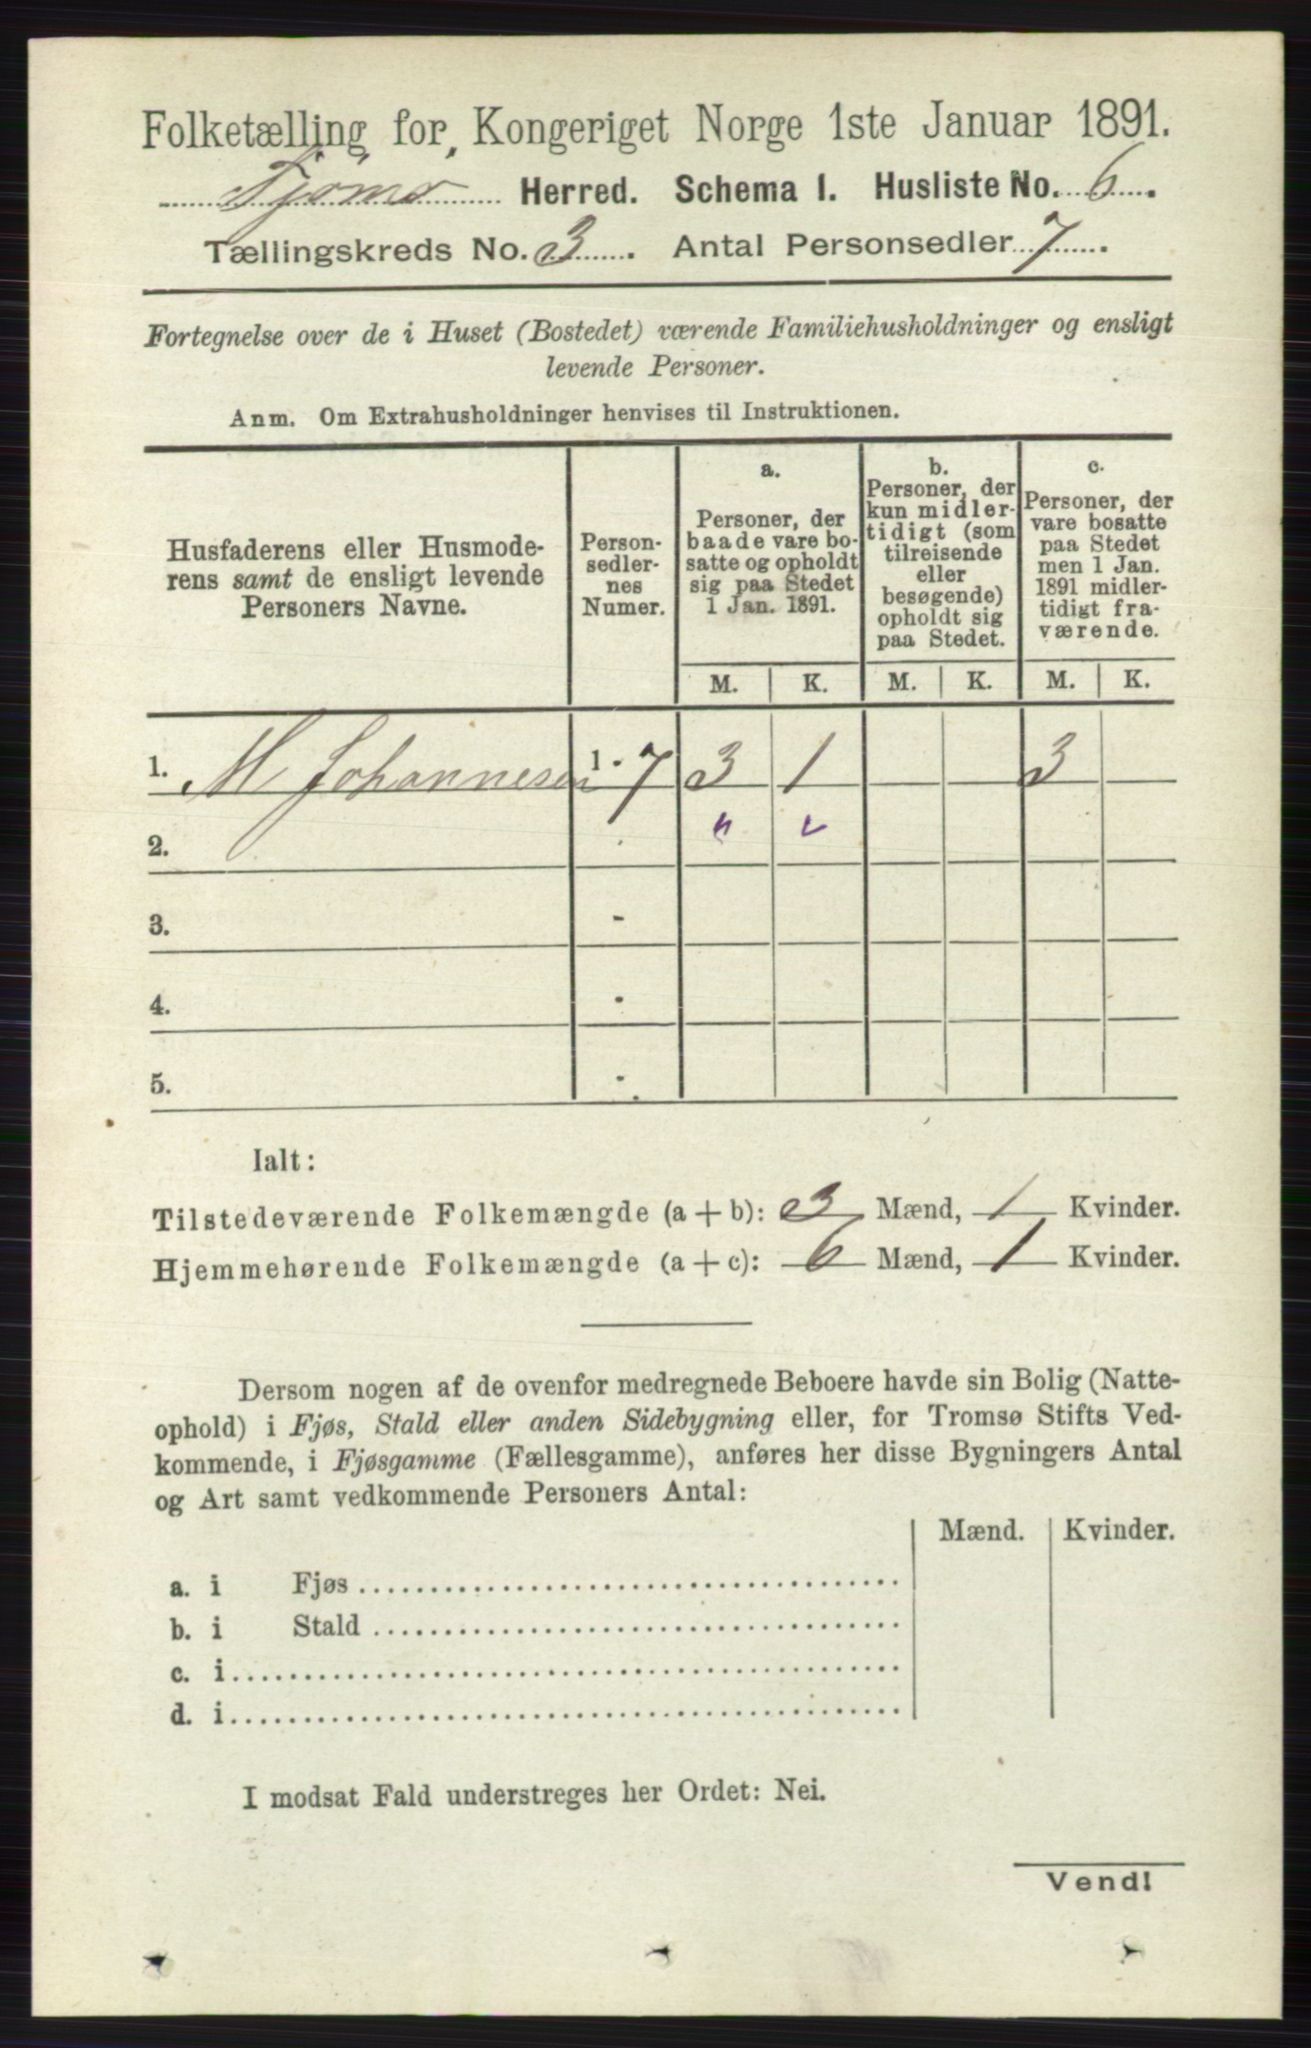 Folketælling for Kongeriget Norge 1ste Januar 1891.
Tjømø Herred. Schema 1. Husliste No. 6.
Tællingskreds No. 3. Antal Personsedler 7.
Fortegnelse over de i Huset (Bostedet) værende Familiehusholdninger og ensligt
levende Personer.
Anm. Om Extrahusholdninger henvises til Instruktionen.
Husfaderens eller Husmode-
rens samt de ensligt levende
Personers Navne.
Person-
sedler-
nes
Numer.
a.
Personer, der
baade vare bo-
satte og opholdt
sig paa Stedet
1 Jan. 1891.
b.
Personer, der
kun midler-
tidigt (som
tilreisende
eller
besøgende)
opholdt sig
paa Stedet.
c.
Personer, der
vare bosatte
paa Stedet
men 1 Jan.
1891 midler-
tidigt fra-
værende.
M. K. M. K. M. K.
1. M Johannesen 1-7 3 1 3
2.
3. -
4. -
5. -
Ialt:
Tilstedeværende Folkemængde (a+b): 3 Mænd, 1 Kvinder.
Hjemmehørende Folkemængde (a+c): 6 Mænd, 1 Kvinder.
Dersom nogen af de ovenfor medregnede Beboere havde sin Bolig (Natte-
ophold) i Fjøs, Stald eller anden Sidebygning eller, for Tromsø Stifts Ved-
kommende, i Fjøsgamme (Fællesgamme), anføres her disse Bygningers Antal
og Art samt vedkommende Personers Antal:
Mænd. Kvinder.
a. i Fjøs
b. i Stald
c. i
d. i
I modsat Fald understreges her Ordet: Nei.
Vend!